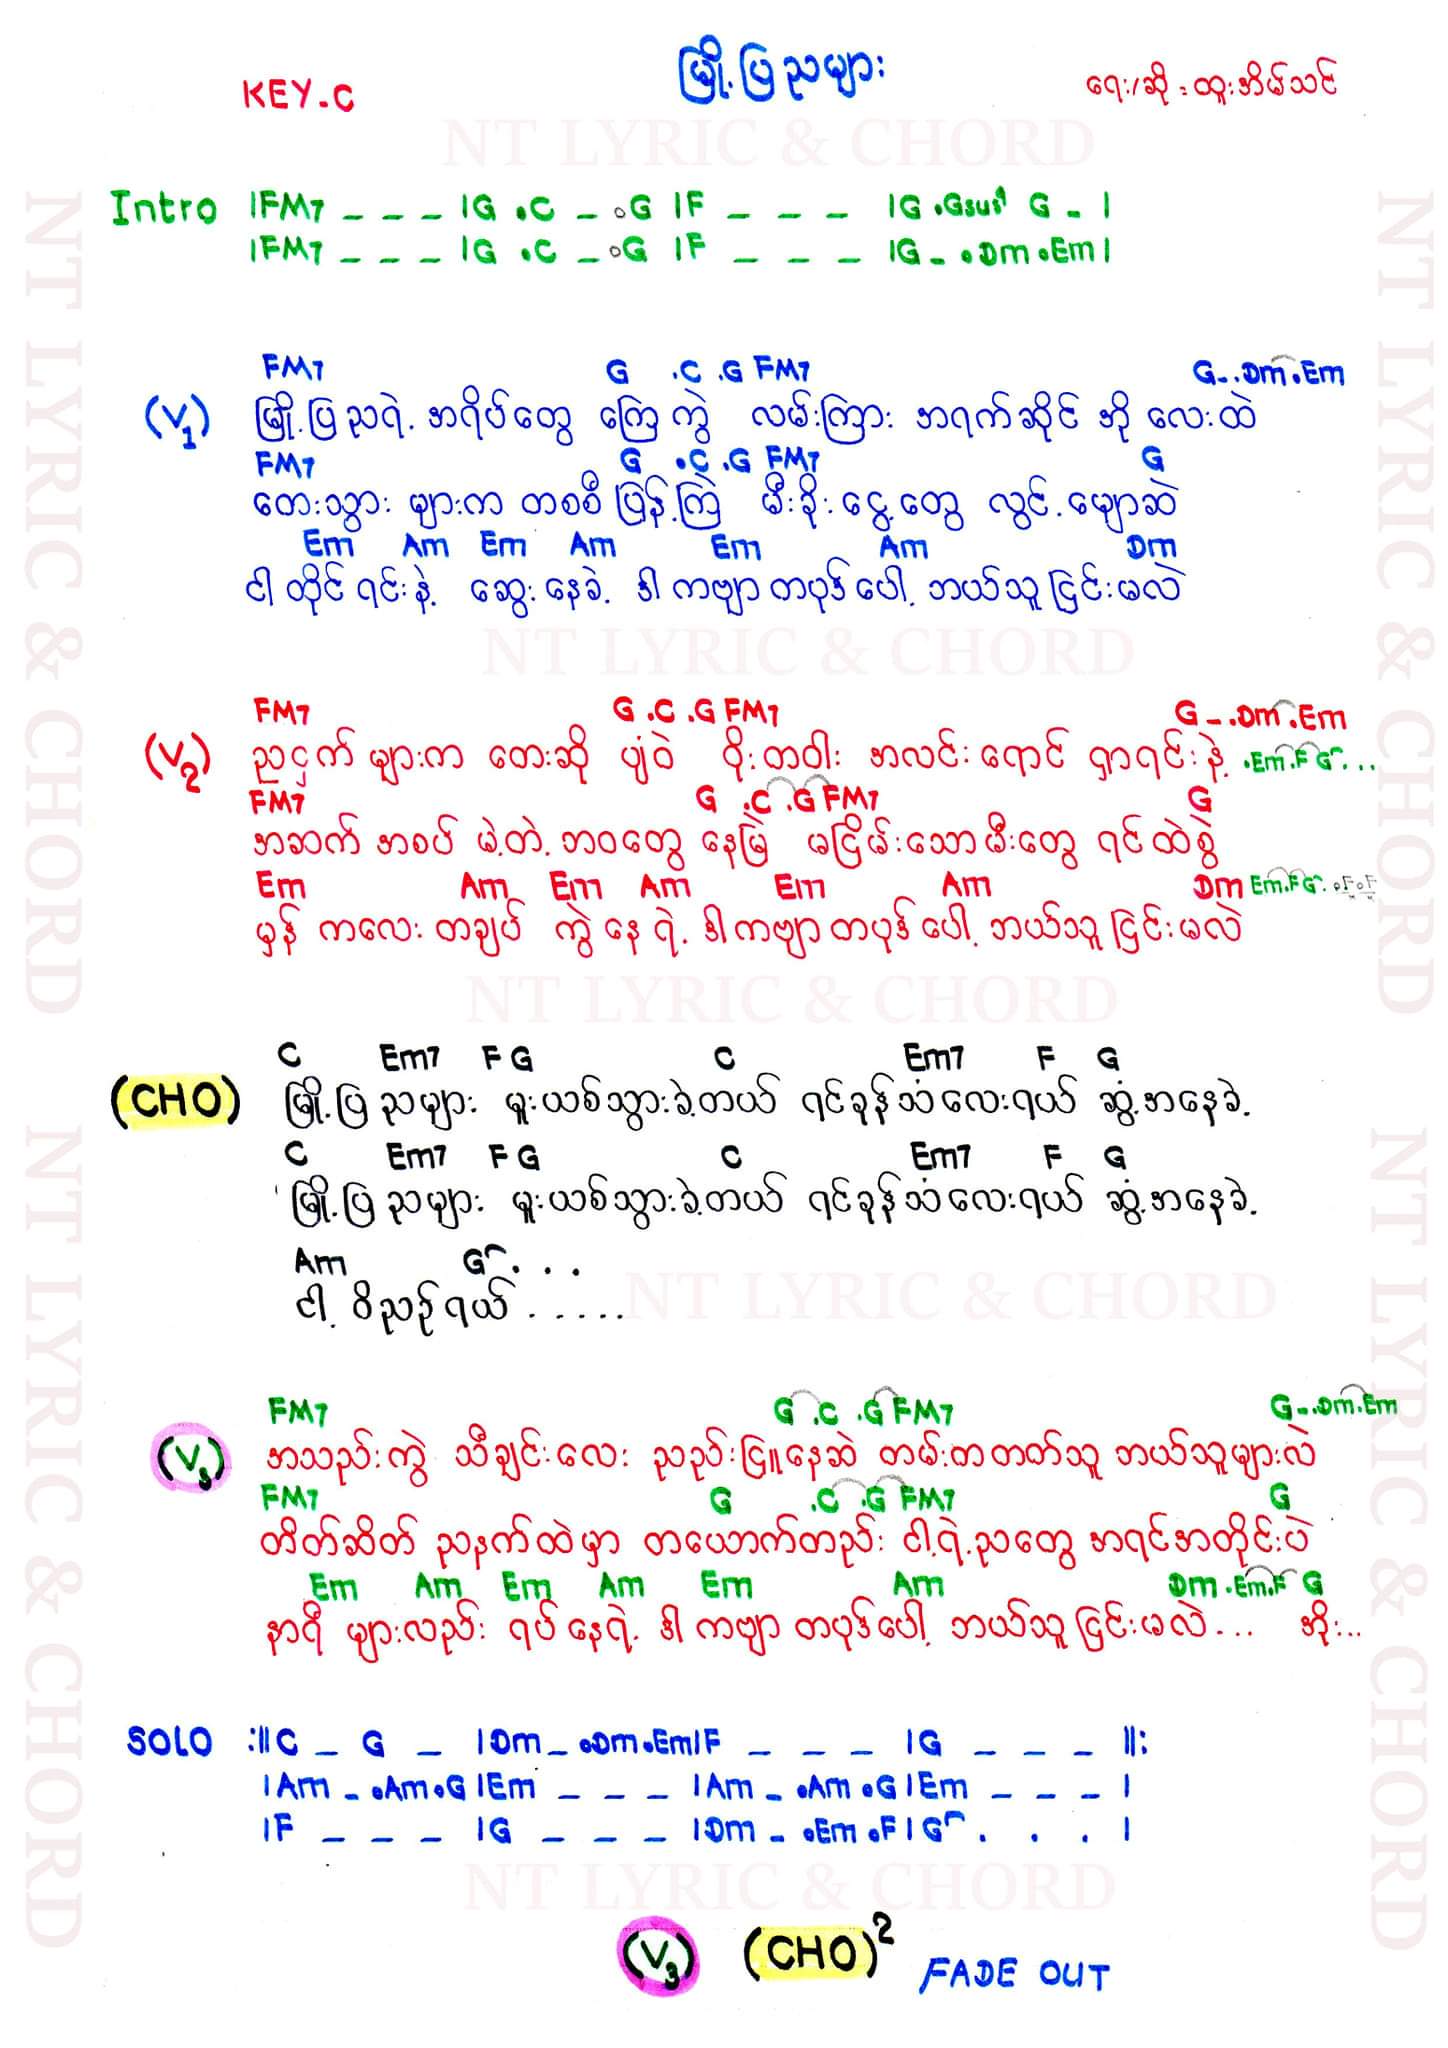 မြို့ပြညများ
KEY-C
ရေး/ဆို - ထူးအိမ်သင်
NT LYRIC & CHORD
Intro |FM7 _ _ _ |G .C _ .G |F _ _ _ |G .Gsus4 G _ |
|FM7 _ _ _ |G .C _ .G |F _ _ _ |G _ .Dm .Em |
FM7 G .C .G FM7 G_ .Dm .Em
(V1) မြို့ပြညရဲ့ အရိပ်တွေ ကြေကွဲ လမ်းကြား အရက်ဆိုင် အိုလေးထဲ
FM7 G .C .G FM7 G
တေးသွား များက တစစီ ပြန့်ကြဲ မီးခိုးငွေ့တွေ လွင့်မျောဆဲ
Em Am Em Am Em Am Dm
ငါ ထိုင်ရင်းနဲ့ ဆွေးနေခဲ့ ဒါ ကဗျာ တပုဒ်ပေါ့ ဘယ်သူ ငြင်းမလဲ
NT LYRIC & CHORD
FM7 G .C .G FM7 G_ .Dm .Em
(V2) ညငှက် များက တေးဆို ပျံဝဲ ဝိုးတဝါး အလင်းရောင် ရှာရင်းနဲ့ .Em.F G...
FM7 G .C .G FM7 G
အဆက် အစပ် မဲ့တဲ့ ဘဝတွေ နေမြဲ မငြိမ်းသောမီးတွေ ရင်ထဲစွဲ
Em Am Em Am Em Am Dm Em.F G. .F.F
မှန် ကလေး တချပ် ကွဲနေရဲ့ ဒါကဗျာ တပုဒ်ပေါ့ ဘယ်သူ ငြင်းမလဲ
NT LYRIC & CHORD
C Em7 F G C Em7 F G
(CHO) မြို့ပြ ညများ မူးယစ်သွားခဲ့တယ် ရင်ခုန်သံလေးရယ် ဆွံ့အနေခဲ့
C Em7 F G C Em7 F G
မြို့ပြ ညများ မူးယစ်သွားခဲ့တယ် ရင်ခုန်သံလေးရယ် ဆွံ့အနေခဲ့
Am G...
ငါ့ ဝိညာဉ်ရယ် ......
NT LYRIC & CHORD
FM7 G .C .G FM7 G_ .Dm.Em
(V3) အသည်းကွဲ သီချင်းလေး ညည်းငြူနေဆဲ တမ်းတတတ်သူ ဘယ်သူများလဲ
FM7 G .C .G FM7 G
တိတ်ဆိတ် ညနက်ထဲမှာ တယောက်တည်း ငါ့ရဲ့ညတွေ အရင်အတိုင်းပဲ
Em Am Em Am Em Am Dm .Em.F G
နာရီ များလည်း ရပ်နေရဲ့ ဒါ ကဗျာ တပုဒ်ပေါ့ ဘယ်သူ ငြင်းမလဲ... အိုး..
SOLO :||C _ G _ |Dm _ .Dm .Em|F _ _ _ |G _ _ _ ||:
|Am _ .Am.G |Em _ _ _ |Am _ .Am .G |Em _ _ _ |
|F _ _ _ |G _ _ _ |Dm _ .Em .F |G . . . |
NT LYRIC & CHORD
(V3) (CHO)2 FADE OUT
NT LYRIC & CHORD
NT LYRIC & CHORD
NT LYRIC & CHORD
NT LYRIC & CHORD